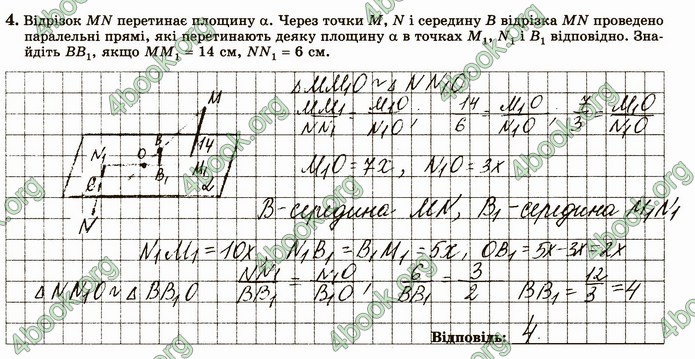 4. Відрізок MN перетинає площину α. Через точки M, N і середину B відрізка MN проведено
паралельні прямі, які перетинають деяку площину α в точках M₁, N₁ і B₁ відповідно. Зна-
йдіть BB₁, якщо MM₁ = 14 см, NN₁ = 6 см.
△MM₁O ~ △NN₁O
MM₁/NN₁ = M₁O/N₁O, 14/6 = M₁O/N₁O, 7/3 = M₁O/N₁O
M
B
14
N₁ O B₁ M₁
6 α
N
M₁O = 7x, N₁O = 3x
B-середина MN, B₁-середина M₁N₁
N₁M₁ = 10x N₁B₁ = B₁M₁ = 5x, OB₁ = 5x-3x = 2x
△NN₁O ~ △BB₁O NN₁/BB₁ = N₁O/B₁O, 6/BB₁ = 3/2 BB₁ = 12/3 = 4
Відповідь: 4
4book.org